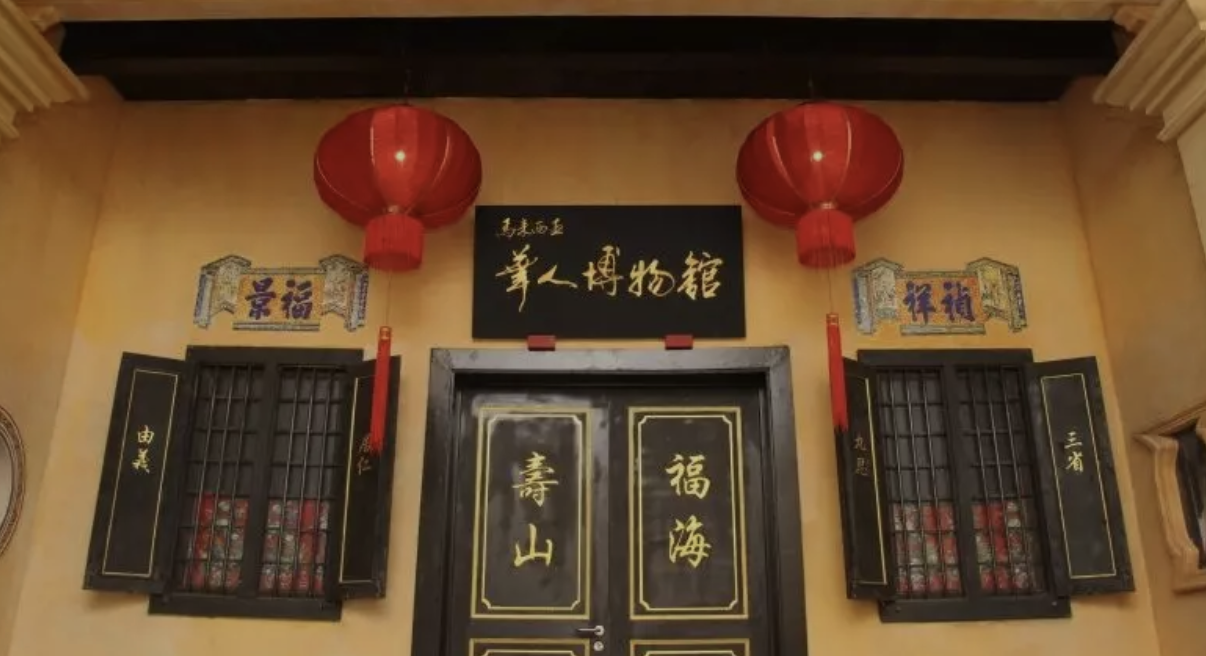 馬來西亞
華人博物館
景福
祥禎
由義
居仁
壽山
福海
九思
三省